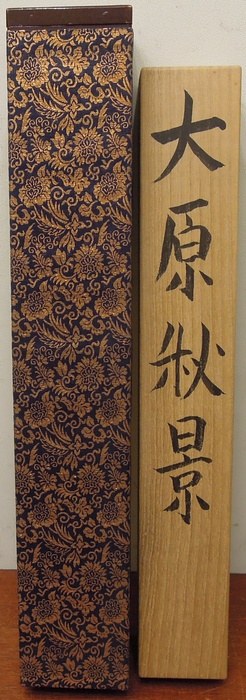 大原秋景